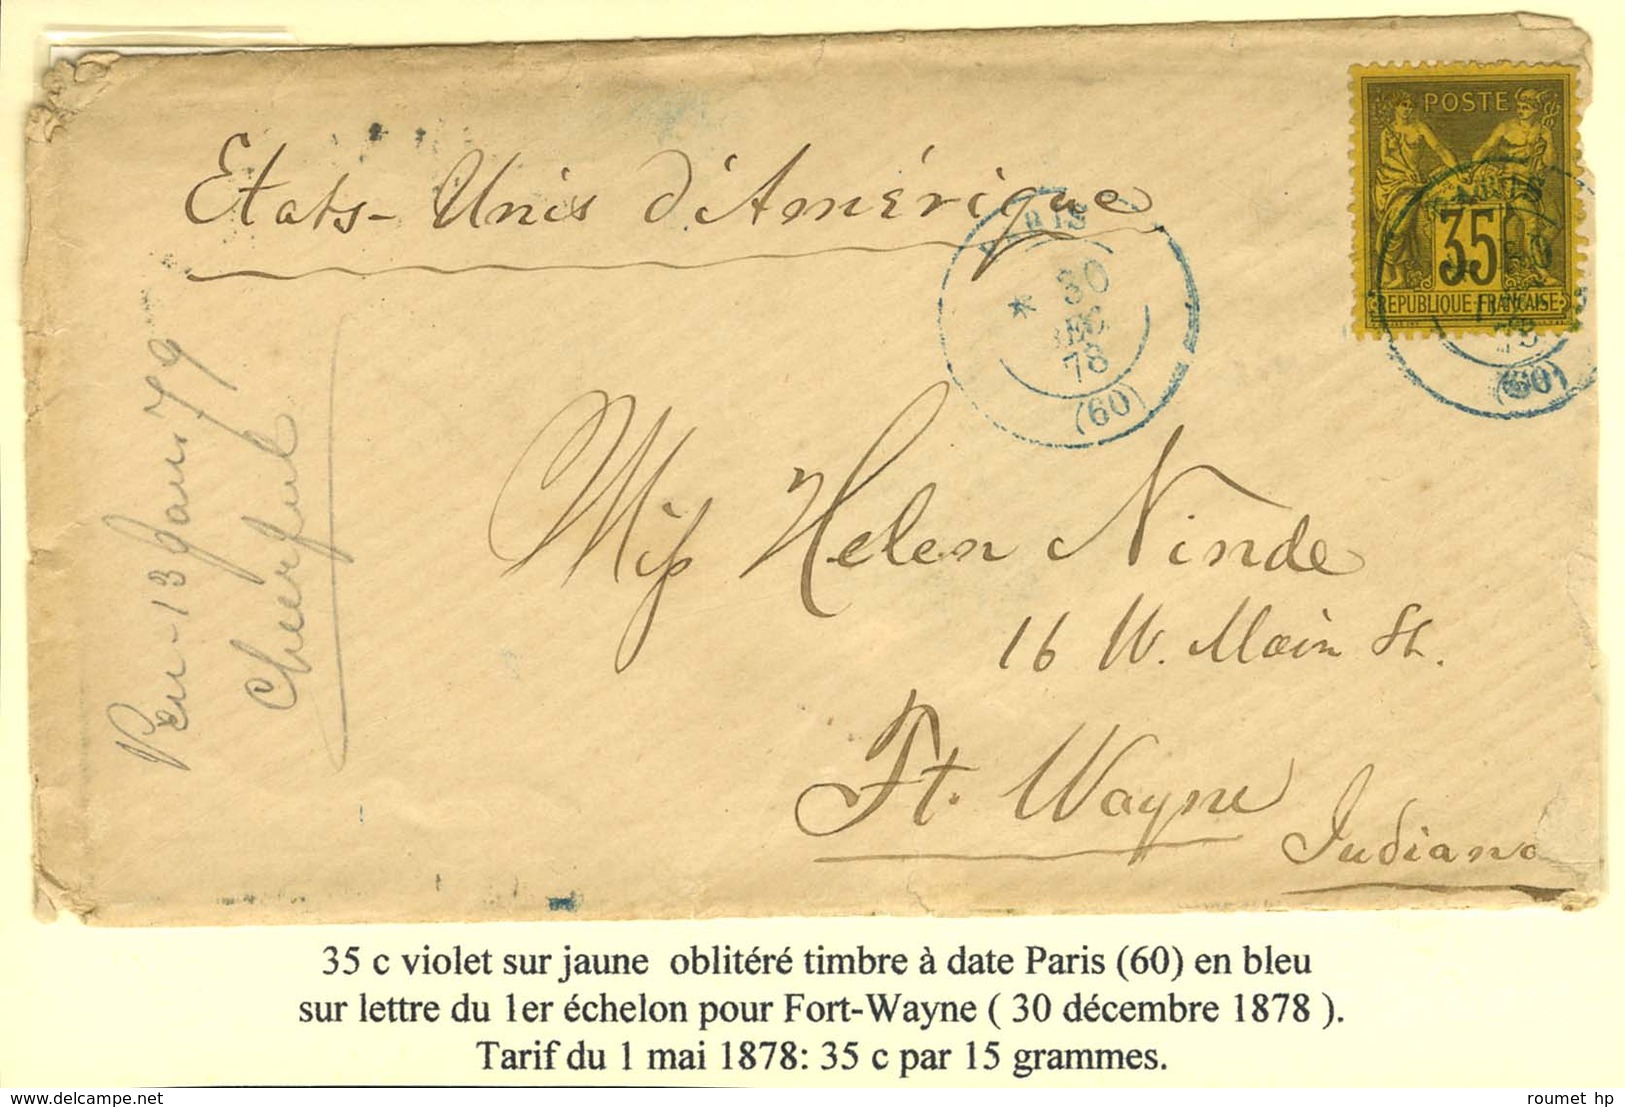 Etats-Unis d'Amérique
POSTE
35
REPUBLIQUE FRANÇAISE
PARIS
(60)
PARIS
30
DEC
78
(60)
Miss Helen Ninde
16 W. Main St.
Ft. Wayne
Indiana
13 Jan 79
Cheerful
35 c violet sur jaune oblitéré timbre à date Paris (60) en bleu
sur lettre du 1er échelon pour Fort-Wayne ( 30 décembre 1878 ).
Tarif du 1 mai 1878: 35 c par 15 grammes.
www.delcampe.net
roumet hp